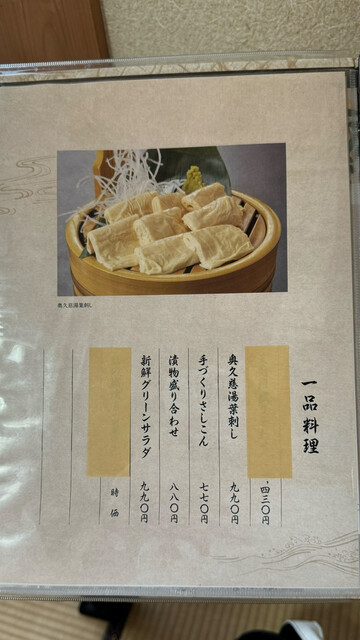 一品料理
,四三〇円
奥久慈湯葉刺し 九九〇円
手づくりさしこん 七七〇円
漬物盛り合わせ 八八〇円
新鮮グリーンサラダ 九九〇円
時価
奥久慈湯葉刺し